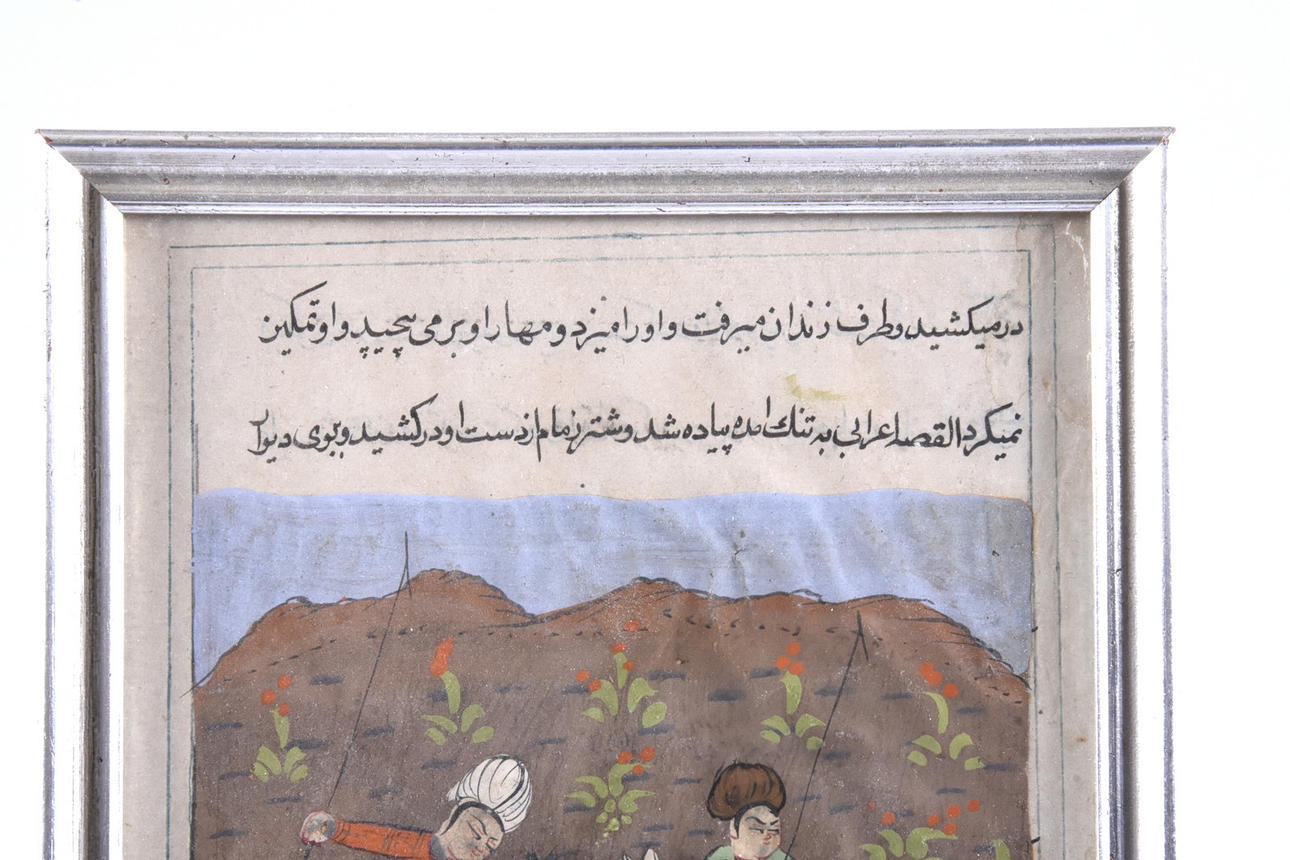 در میکشید وطرف زندان میرفت و او را میزد و مهار او بر می پیچید و او تمکین
نمیکرد القصه اعرابی به تنك امده پیاده شد و شتر زمام از دست او در کشید و بوی دیوار